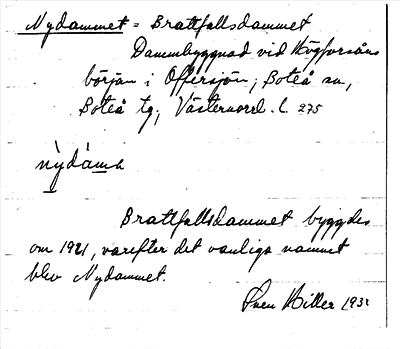 Nydammet = Brattfallsdammet
Dammbyggnad vid Högforsåns
början i Offersjön; Boteå sn,
Boteå tg; Västernorrl. l. 275
nỳdám̲
Brattfallsdammet byggdes
om 1921, varefter det vanliga namnet
blev Nydammet.
Sven Hiller 193